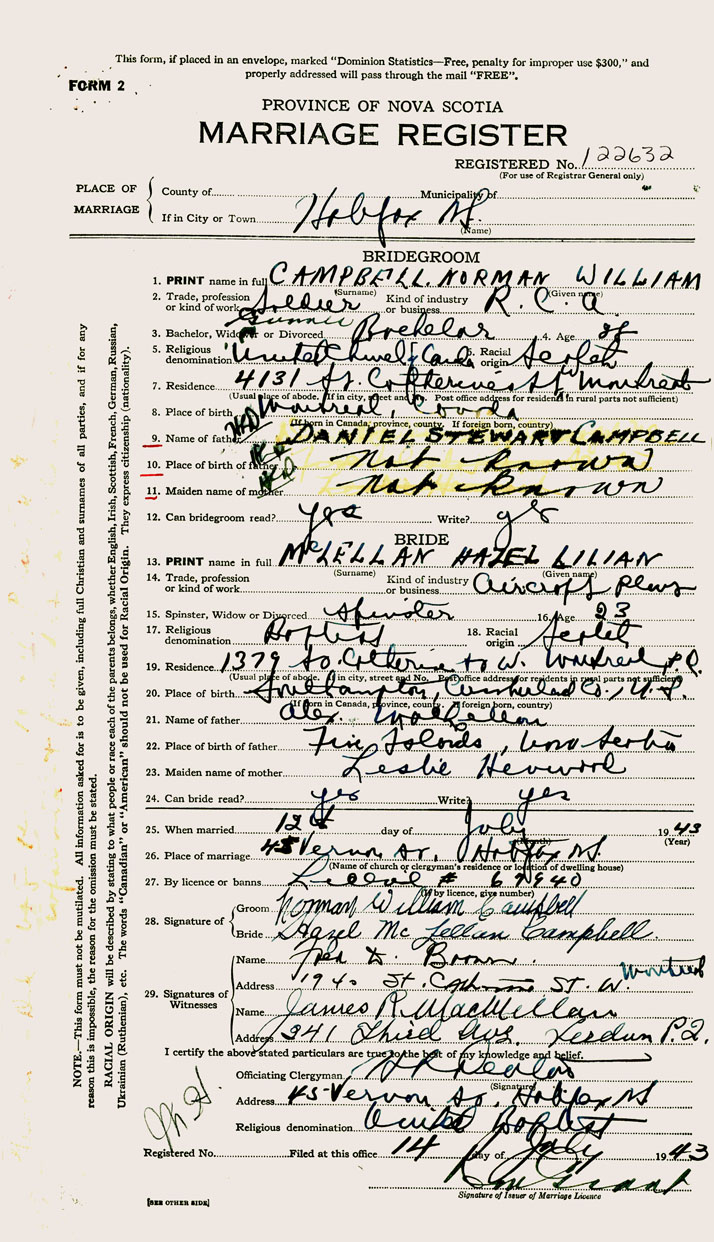 This form, if placed in an envelope, marked "Dominion Statistics—Free, penalty for improper use $300," and
properly addressed will pass through the mail "FREE".
FORM 2
PROVINCE OF NOVA SCOTIA
MARRIAGE REGISTER
REGISTERED No. 122632
(For use of Registrar General only)
PLACE OF MARRIAGE
County of Municipality of
If in City or Town Halifax N.S.
(Name)
BRIDEGROOM
1. PRINT name in full CAMPBELL. NORMAN WILLIAM
(Surname) (Given name)
2. Trade, profession or kind of work Soldier Kind of industry or business R. C. A
Gunner
3. Bachelor, Widower or Divorced Bachelor 4. Age 28
5. Religious denomination United Church of Canada 6. Racial origin Scotch
7. Residence 4131 St. Catherine St W Montreal
(Usual place of abode. If in city, street and No. Post office address for residents in rural parts not sufficient)
8. Place of birth Montreal, Canada
(If born in Canada, province, county. If foreign born, country)
9. Name of father DANIEL STEWART CAMPBELL
10. Place of birth of father Not known
11. Maiden name of mother Not known
12. Can bridegroom read? yes Write? yes
BRIDE
13. PRINT name in full McLELLAN HAZEL LILIAN
(Surname) (Given name)
14. Trade, profession or kind of work Kind of industry or business Aircraft
15. Spinster, Widow or Divorced Spinster 16. Age 23
17. Religious denomination Baptist 18. Racial origin Scotch
19. Residence 1379 St. Catherine St W. Montreal, P.Q.
(Usual place of abode. If in city, street and No. Post office address for residents in rural parts not sufficient)
20. Place of birth Southampton, Cumberland Co., N.S.
(If born in Canada, province, county. If foreign born, country)
21. Name of father Alex. McLellan
22. Place of birth of father Five Islands, Nova Scotia
23. Maiden name of mother Leslie
24. Can bride read? yes Write? yes
25. When married 12th day of July 1943
(Month) (Year)
26. Place of marriage 45 Vernon St., Halifax NS
(Name of church or clergyman's residence or location of dwelling house)
27. By licence or banns License # 67940
(If by licence, give number)
28. Signature of
Groom Norman William Campbell
Bride Hazel McLellan Campbell.
29. Signatures of Witnesses
Name Fred Brown
Address 1940 St. Catherine St. W. Montreal
Name James R. MacMillan
Address 1341 Third Ave. Verdun P.Q.
I certify the above stated particulars are true to the best of my knowledge and belief.
Officiating Clergyman
(Signature)
Address 45 Vernon St. Halifax NS
Religious denomination United Baptist
Registered No. Filed at this office 14 day of July 1943
Signature of Issuer of Marriage Licence
[SEE OTHER SIDE]
NOTE.—This form must not be mutilated. All information asked for is to be given, including full Christian and surnames of all parties, and if for any
reason this is impossible, the reason for the omission must be stated.
RACIAL ORIGIN will be described by stating to what people or race each of the parents belongs, whether English, Irish, Scottish, French, German, Russian,
Ukrainian (Ruthenian), etc. The words "Canadian" or "American" should not be used for Racial Origin. They express citizenship (nationality).